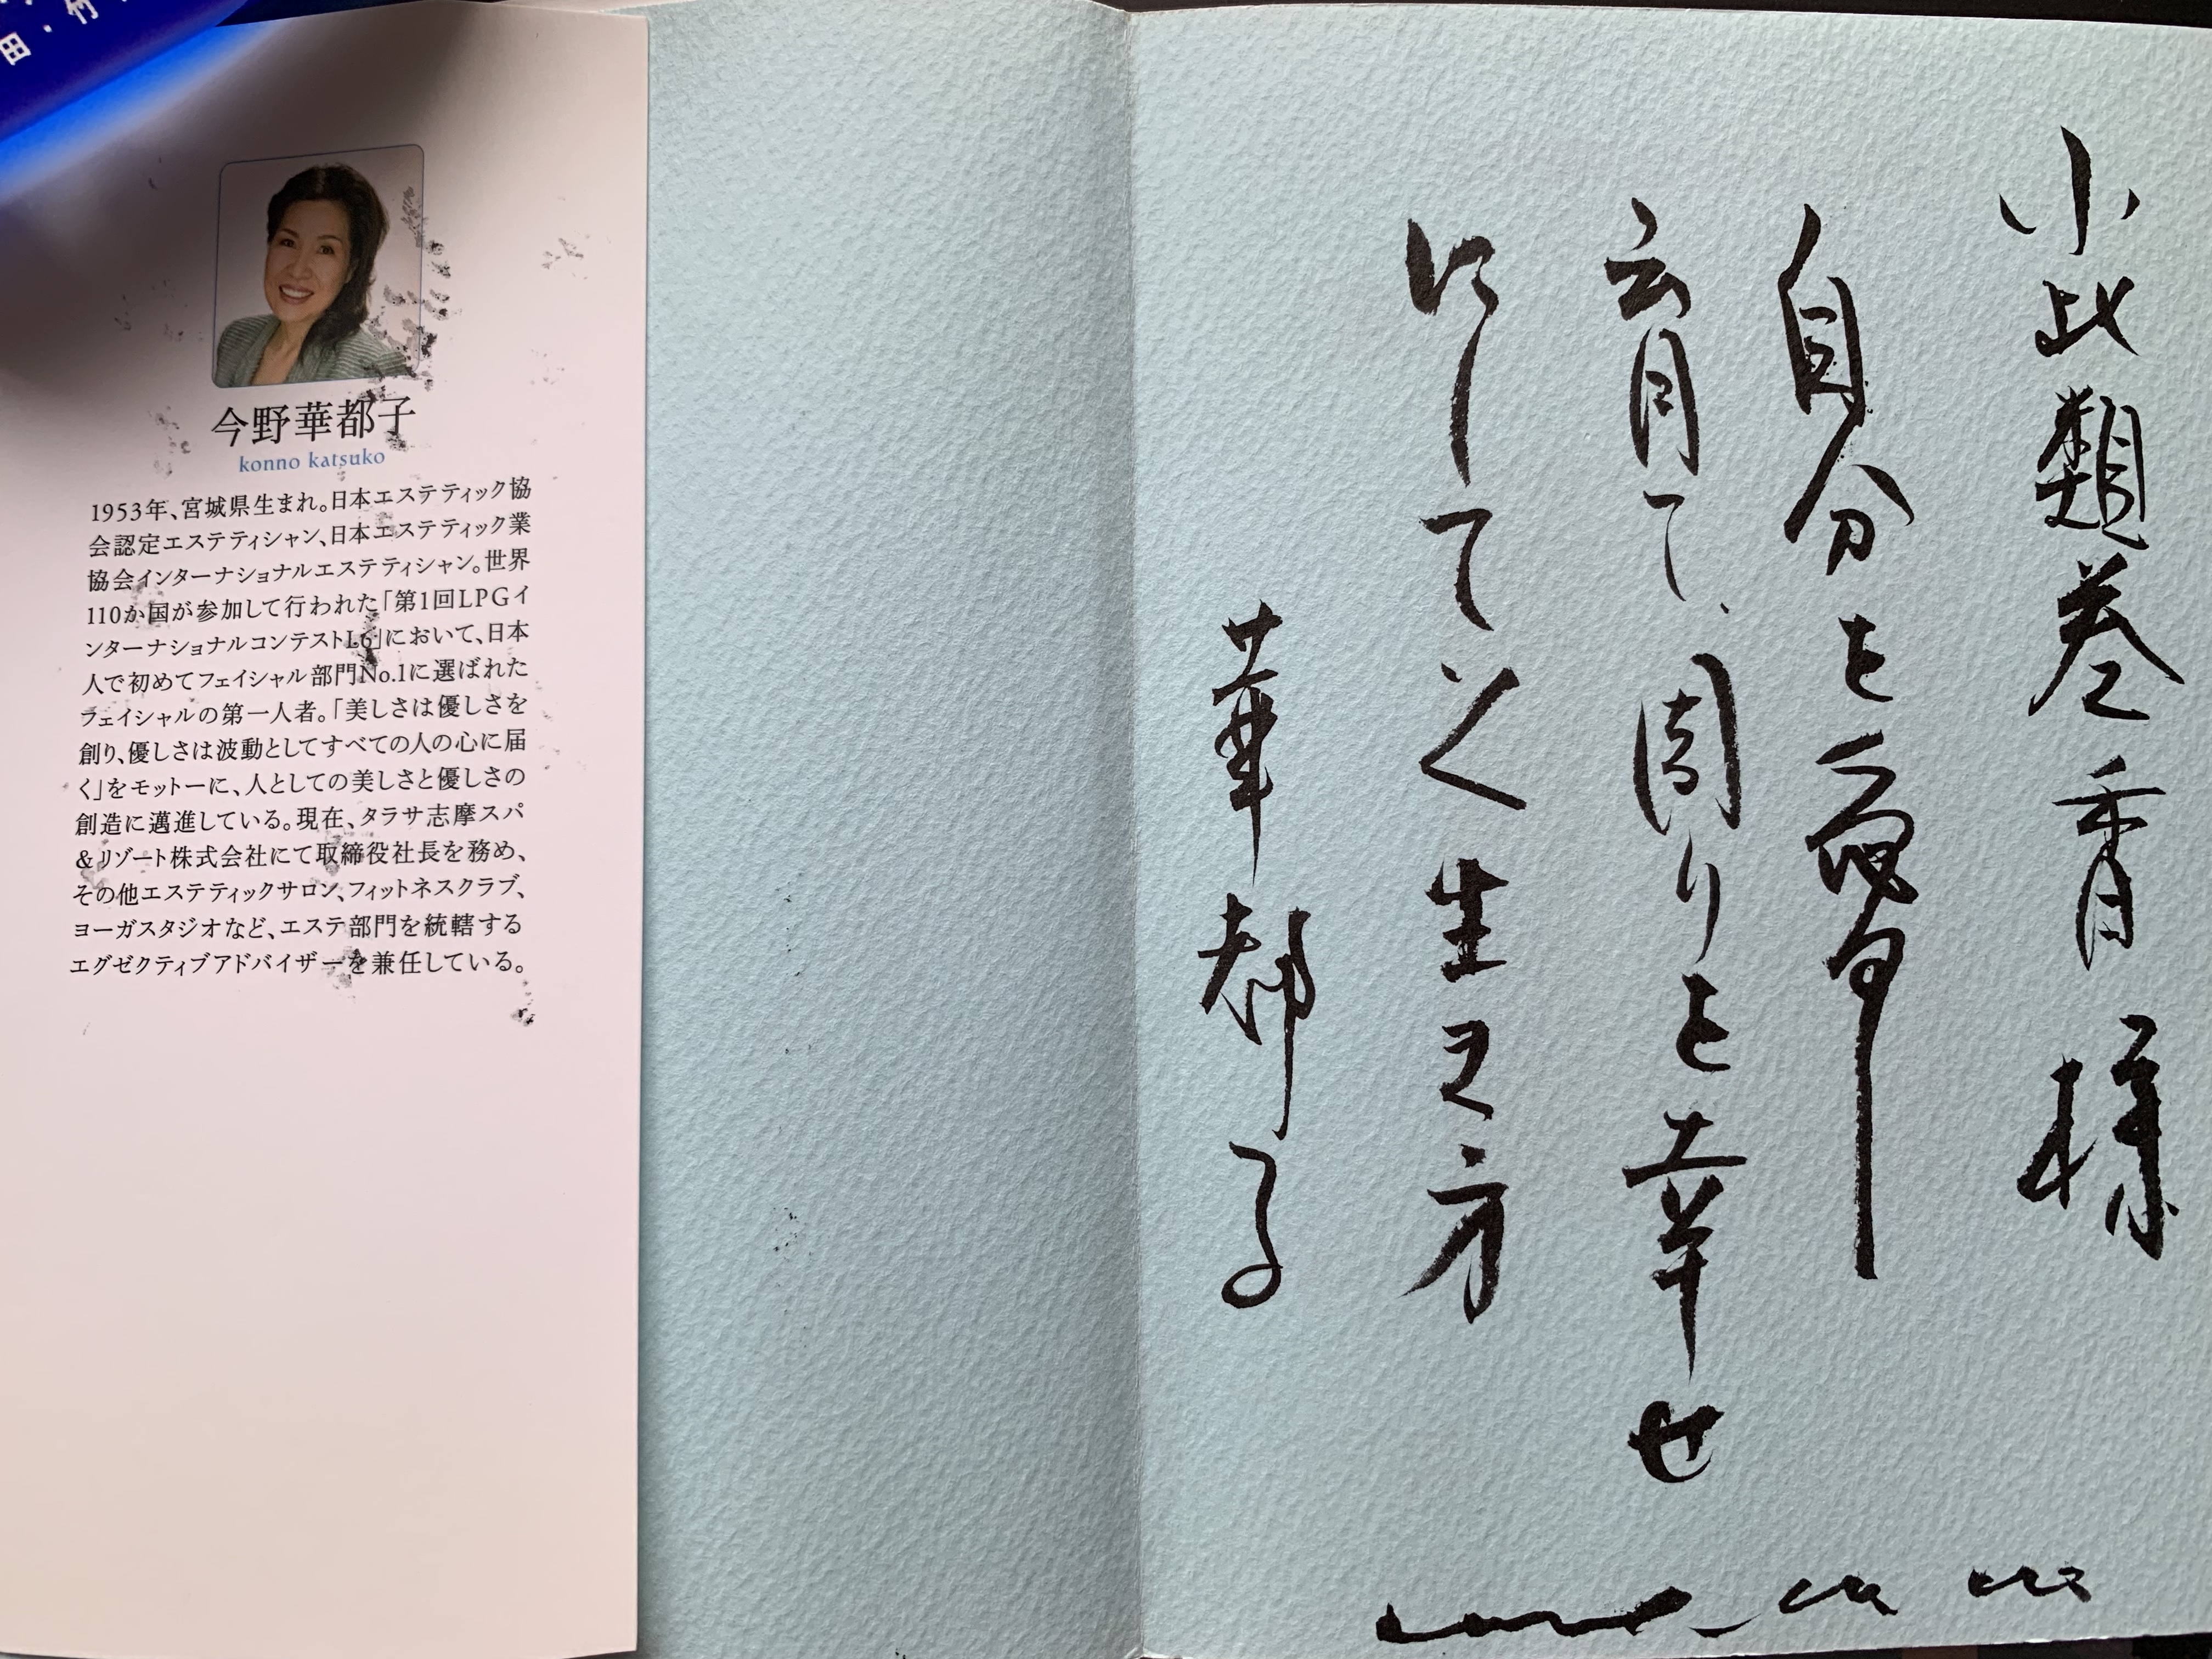 田・竹
今野華都子
konno katsuko
1953年、宮城県生まれ。日本エステティック協
会認定エステティシャン、日本エステティック業
協会インターナショナルエステティシャン。世界
110か国が参加して行われた「第1回LPGイ
ンターナショナルコンテストL6」において、日本
人で初めてフェイシャル部門No.1に選ばれた
フェイシャルの第一人者。「美しさは優しさを
創り、優しさは波動としてすべての人の心に届
く」をモットーに、人としての美しさと優しさの
創造に邁進している。現在、タラサ志摩スパ
&リゾート株式会社にて取締役社長を務め、
その他エステティックサロン、フィットネスクラブ、
ヨーガスタジオなど、エステ部門を統轄する
エグゼクティブアドバイザーを兼任している。
小比類巻香様
自分を愛し
育て、周りを幸せ
にしていく生き方
華都子